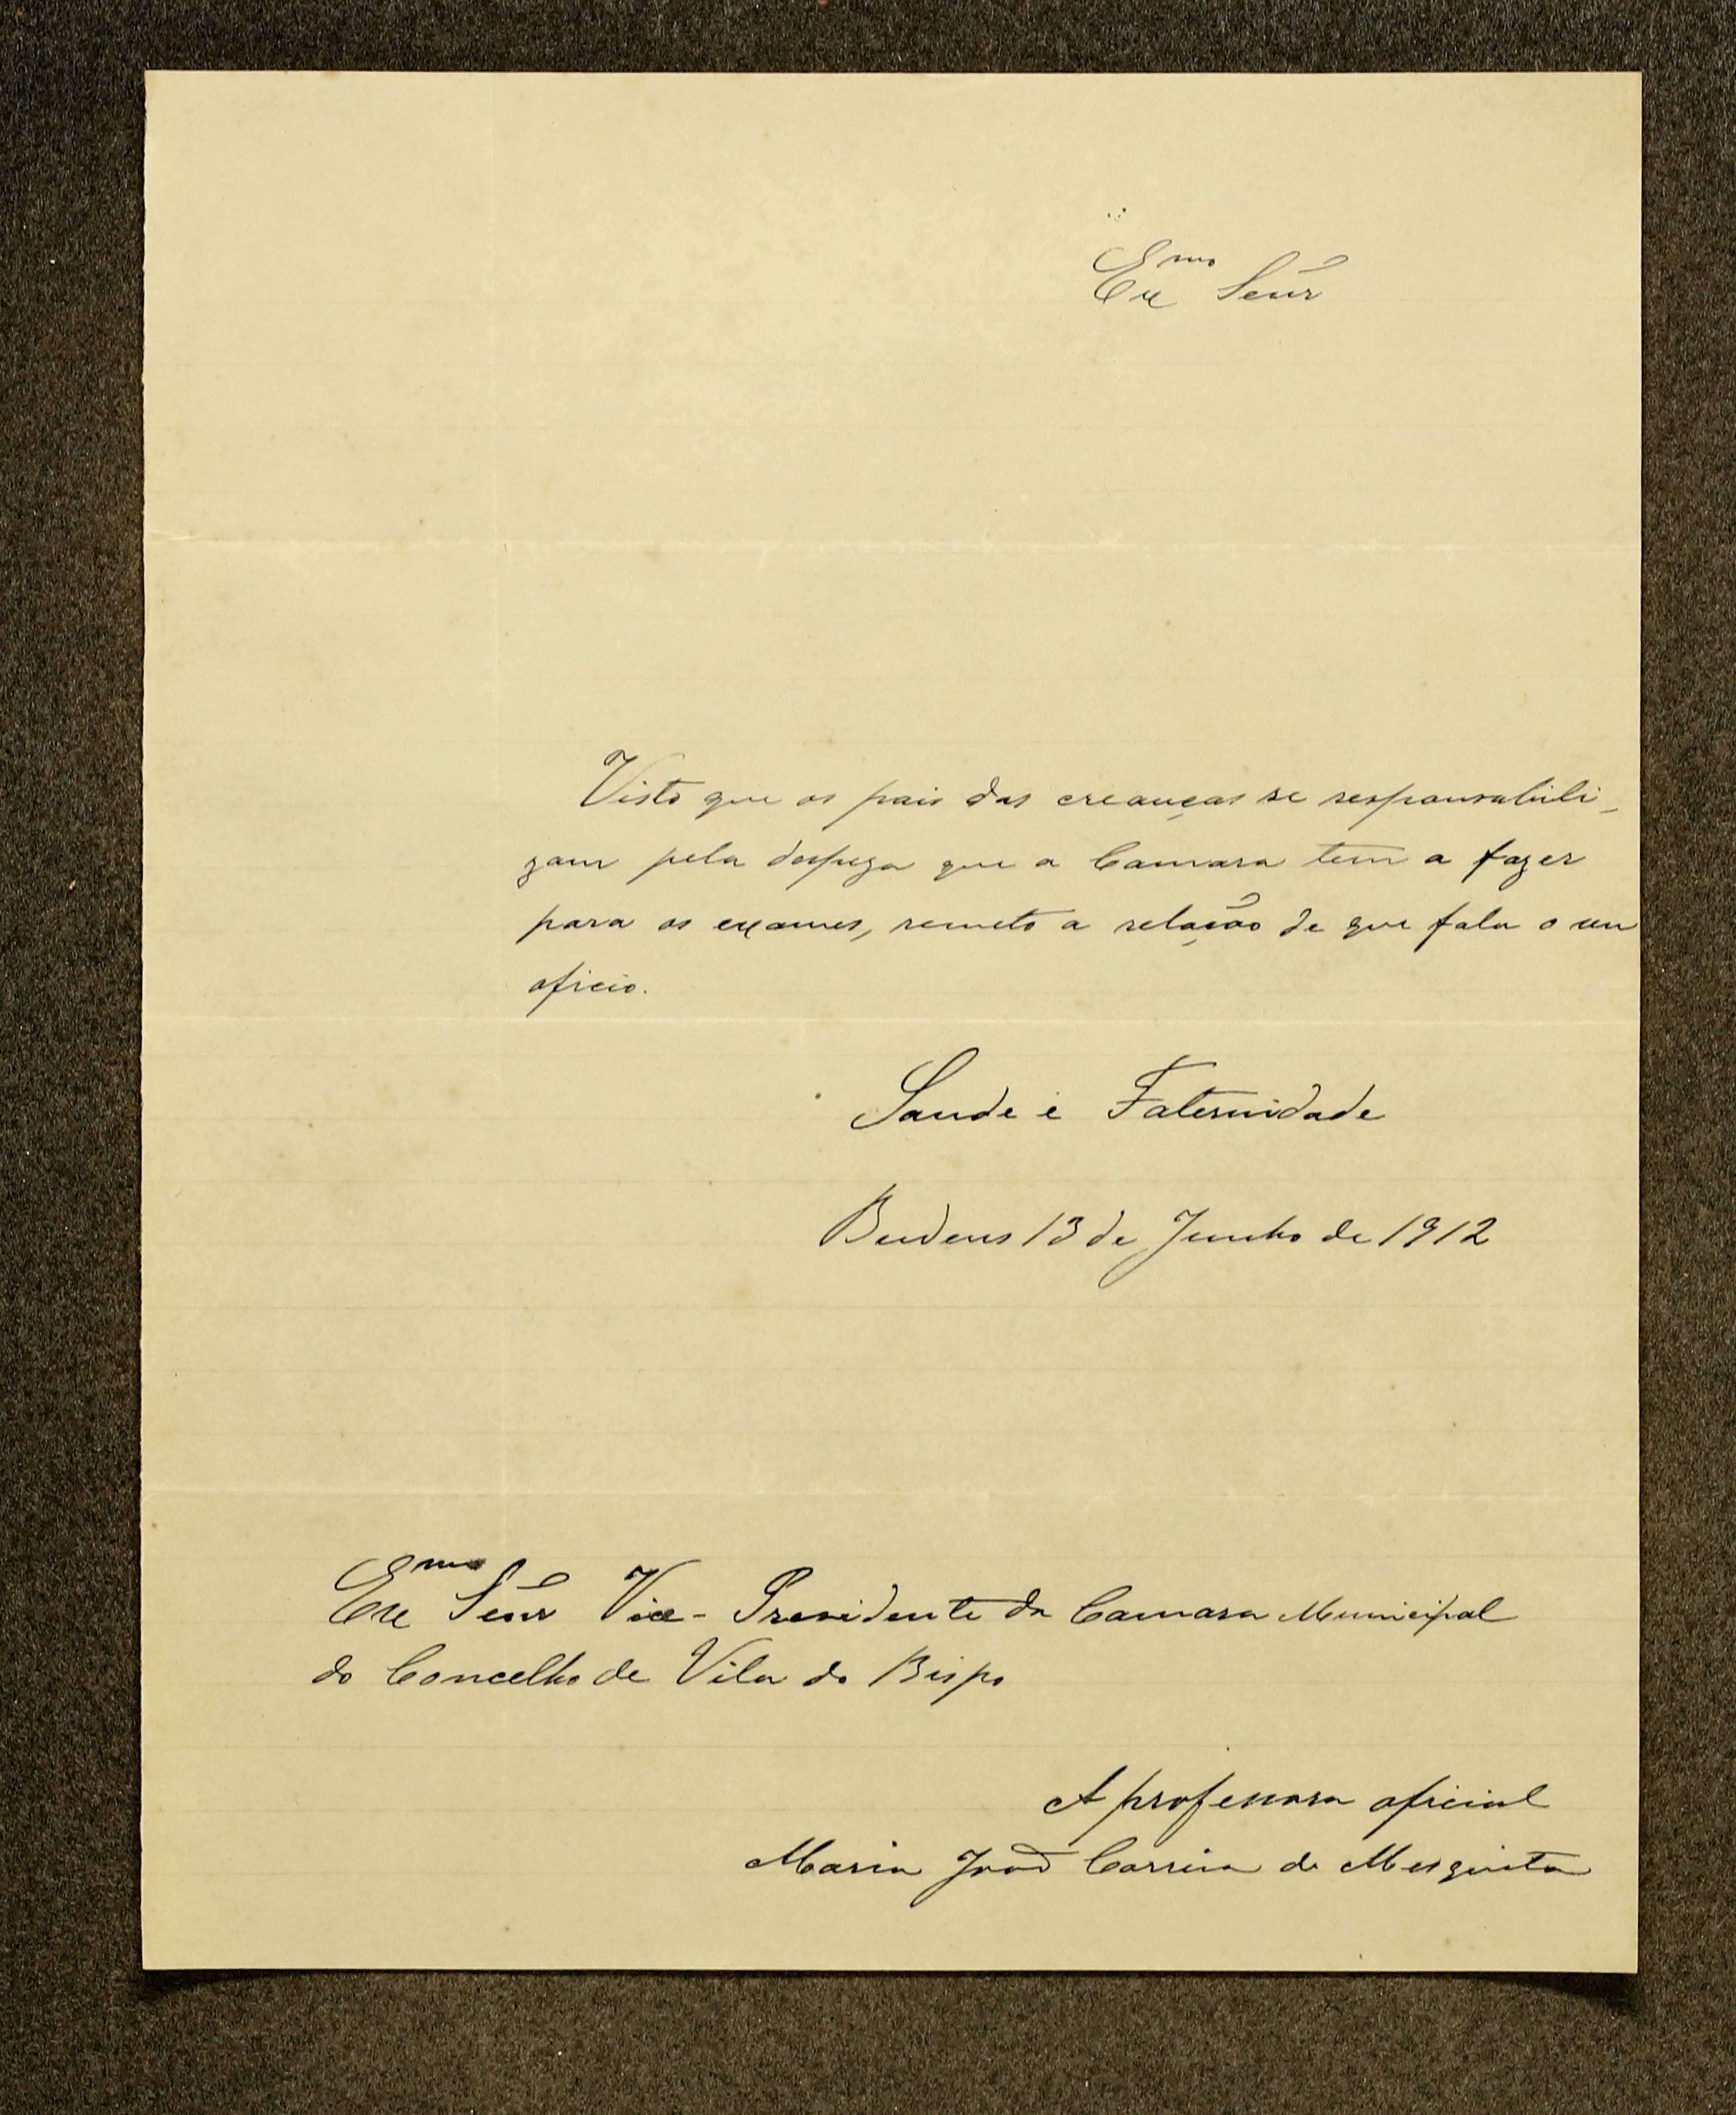 Exmo Senr
Visto que os pais das creanças se responsabili-
zam pela despeza que a Camara tem a fazer
para os exames, remeto a relação de que fala o seu
oficio.
Saude e Faternidade
Budens 13 de Junho de 1912
Exmo Senr Vice-Presidente da Camara Municipal
do Concelho de Vila do Bispo
A professora oficial
Maria José Correia de Mesquita